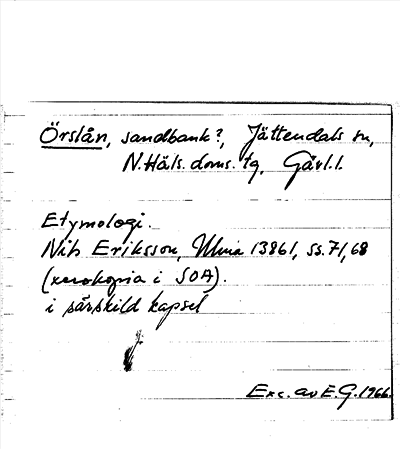 Örslån, sandbank?, Jättendals sn,
N. Häls. doms. tg, Gävl. l.
Etymologi.
Nils Eriksson, Ulma 13861, ss. 71, 68
(xerokopia i SOA).
i särskild kapsel
Exc. av E.G. 1966.